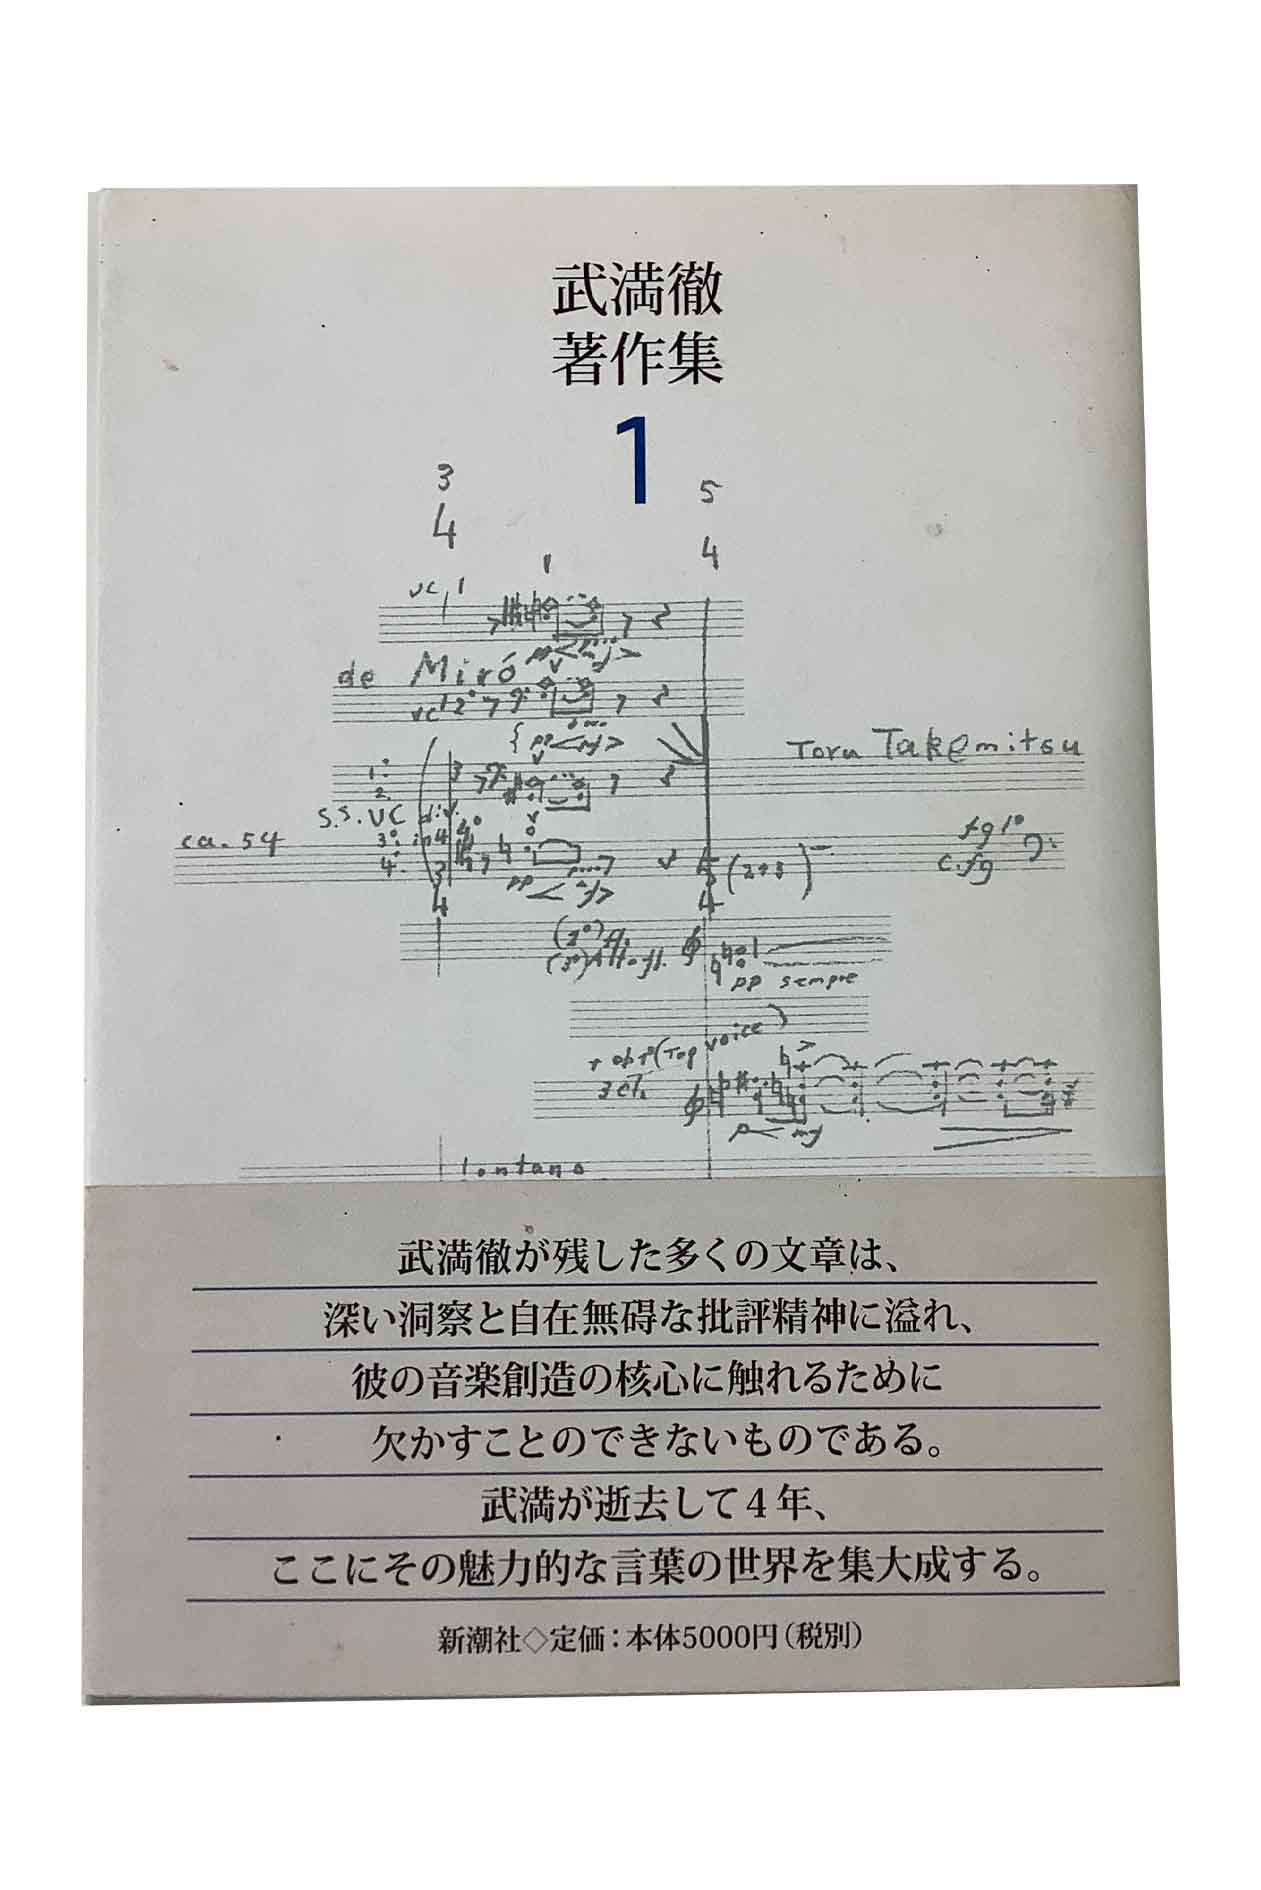 武満徹
著作集
1
3
4
5
4
vc 1
de Miró
pp < mf >
vc 2°
pp < mf >
Toru Takemitsu
1°
2.
s.s. vc div.
ca. 54
3°. in 4
4.
3
4
pp < mf >
5
4
(2+3)
fg 1°
c.fg
(2°) fl.
(3°) Alto fl.
pp sempre
+ ob 1° (Top voice)
3 cl.
p < mf
lontano
武満徹が残した多くの文章は、
深い洞察と自在無碍な批評精神に溢れ、
彼の音楽創造の核心に触れるために
欠かすことのできないものである。
武満が逝去して4年、
ここにその魅力的な言葉の世界を集大成する。
新潮社◇定価：本体5000円（税別）